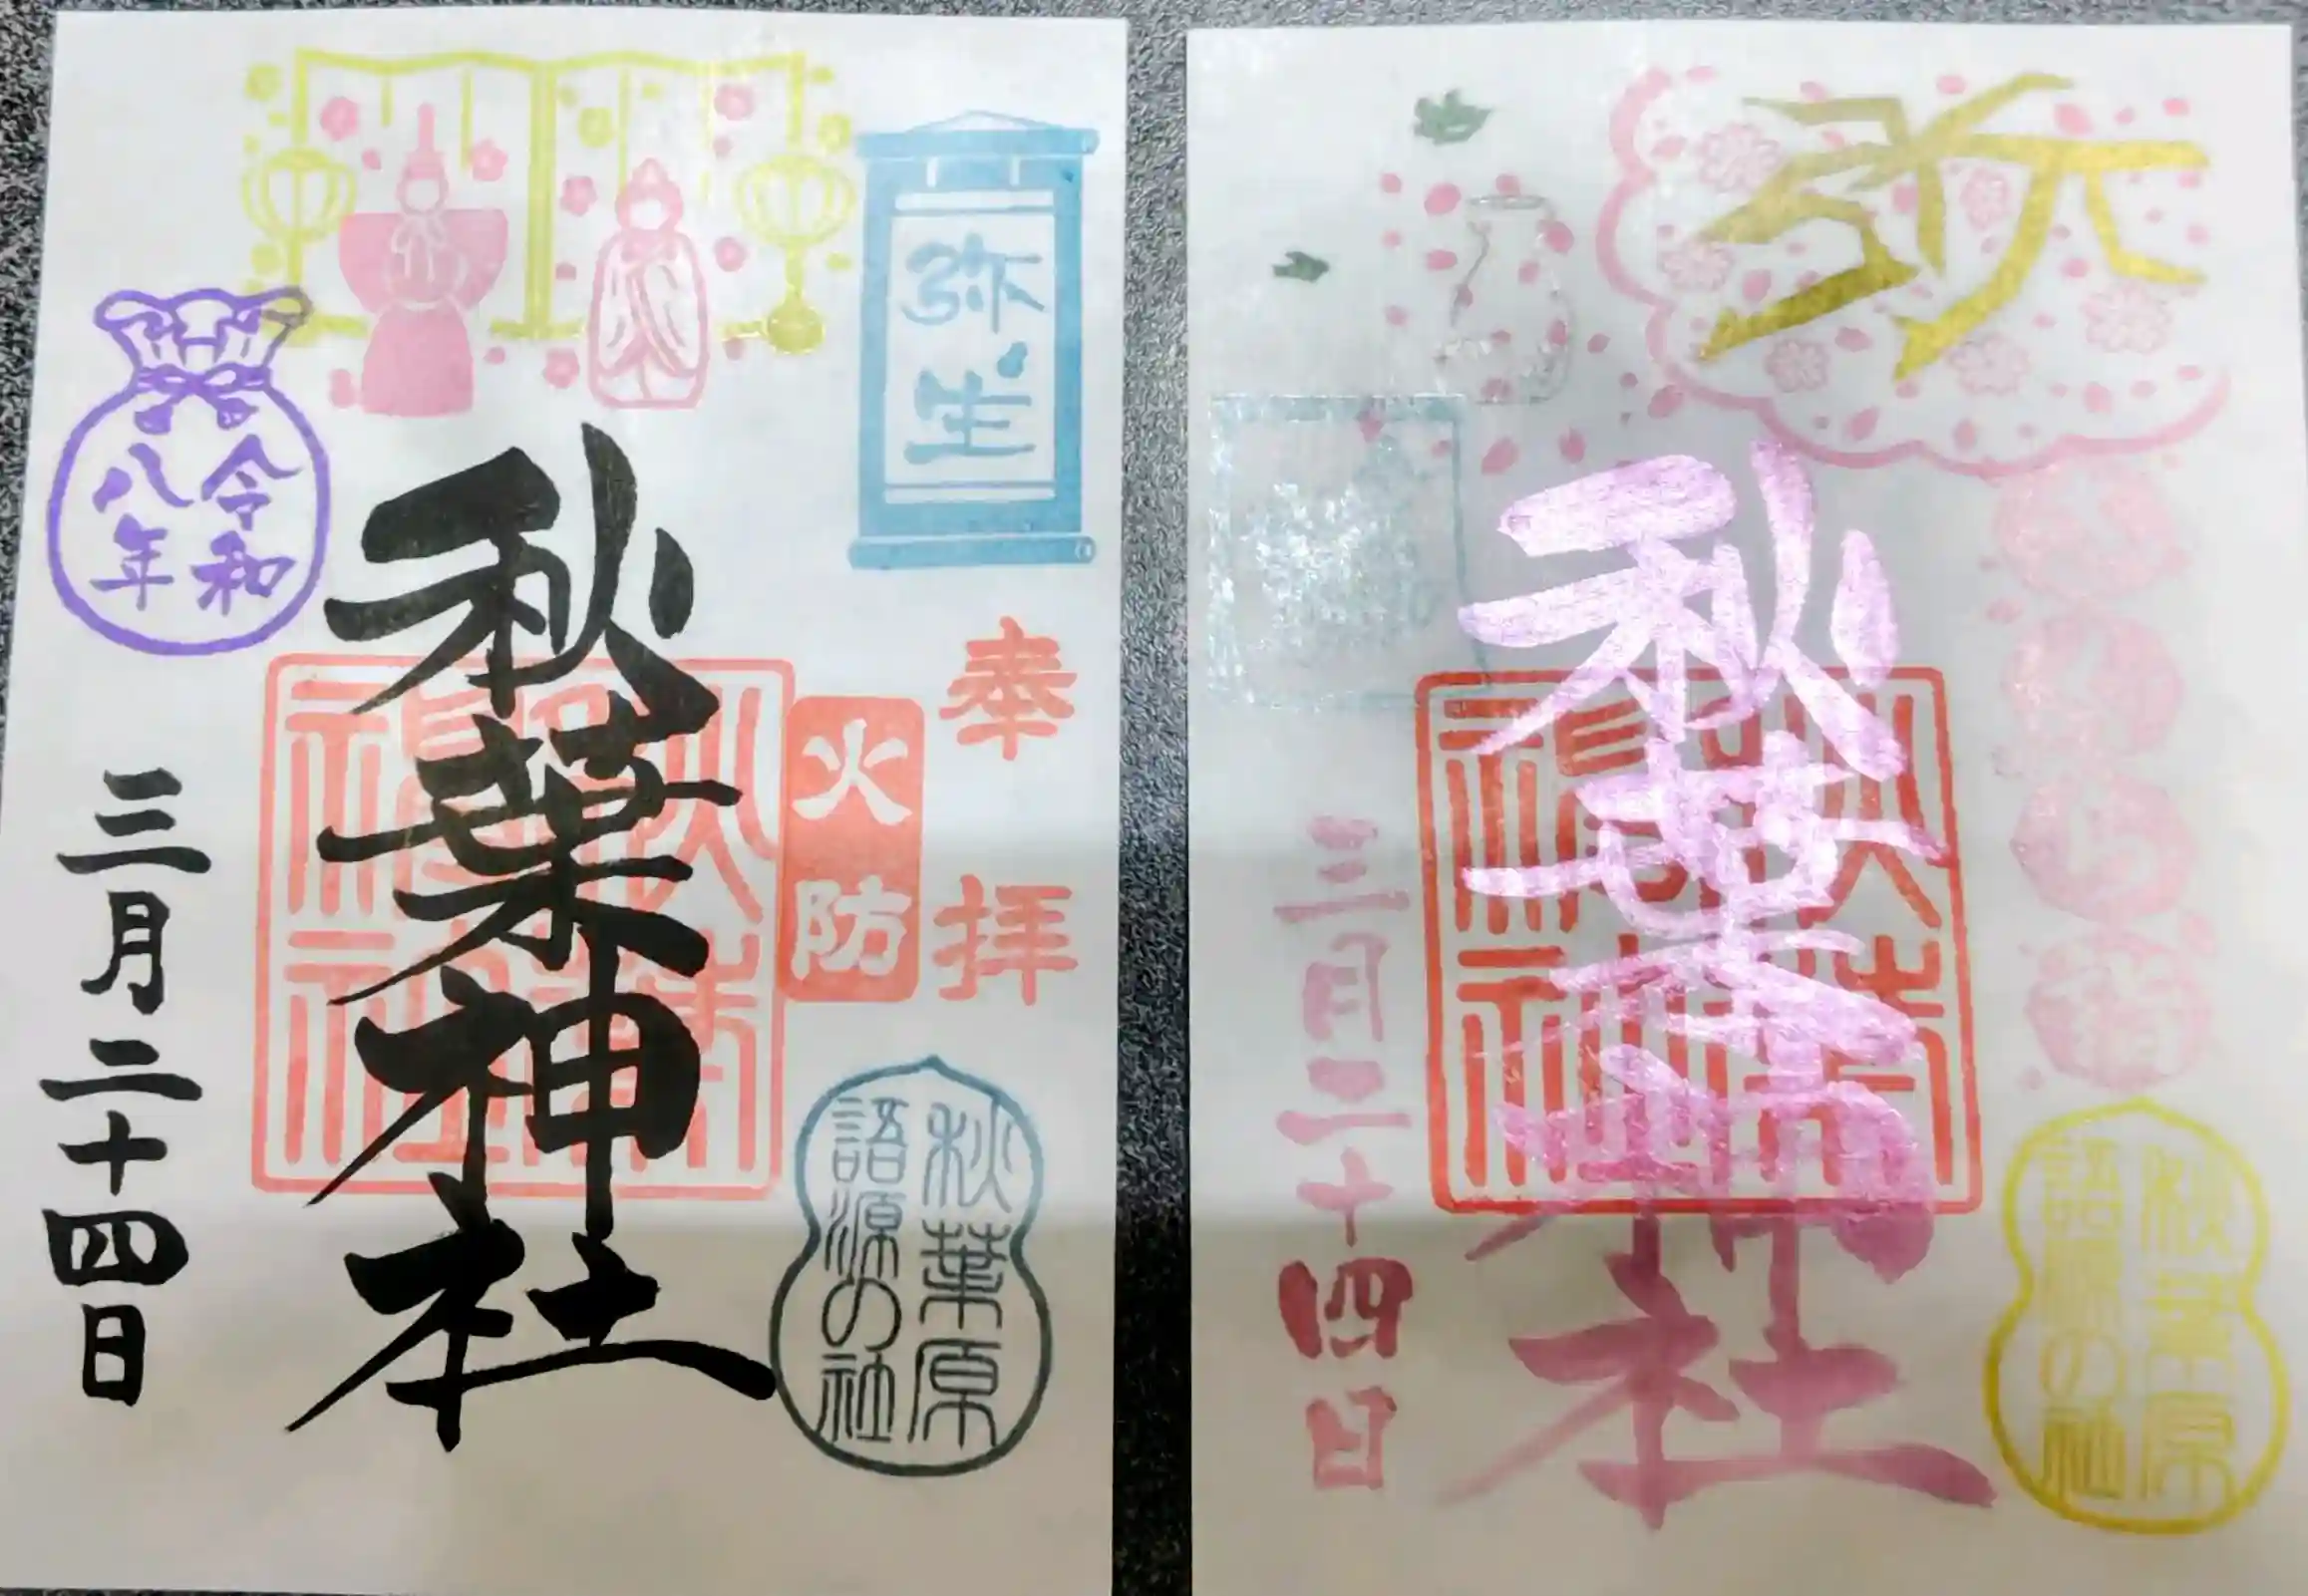 弥生
令和
八年
奉拝
火防
秋葉神社
三月二十四日
秋葉原
語源の社
弥
秋葉神社
三月二十四日
秋葉原
語源の社